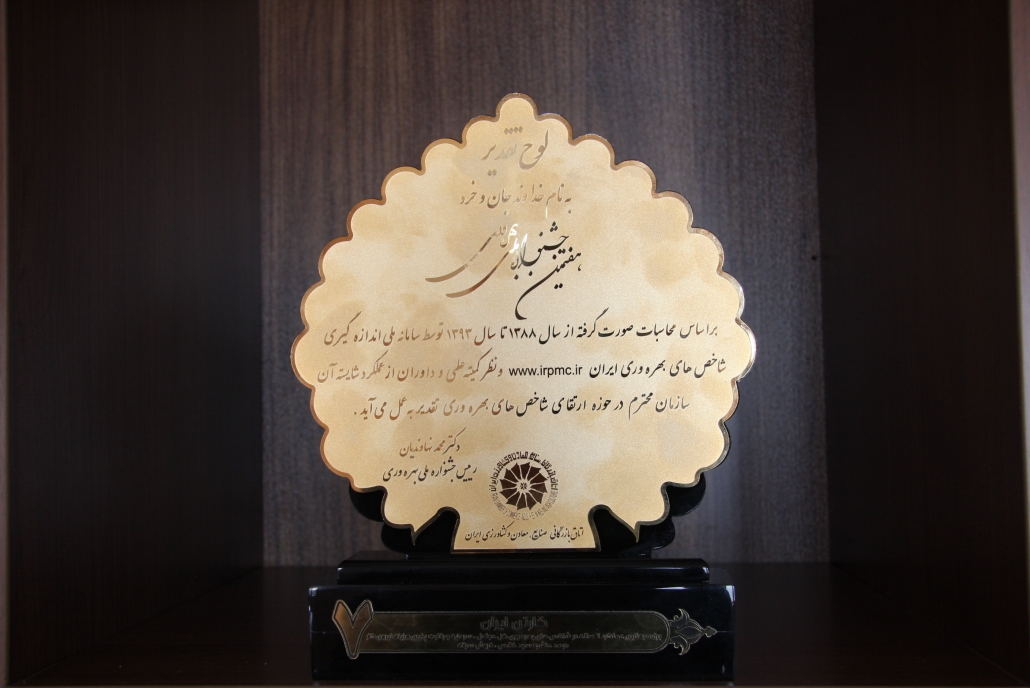 لوح تقدیر
به نام خداوند جان و خرد
هفتمین جشنواره ملی
براساس محاسبات صورت گرفته از سال ۱۳۸۸ تا سال ۱۳۹۳ توسط سامانه ملی اندازه گیری
شاخص های بهره وری ایران www.irpmc.ir و نظر کمیته علمی و داوران از عملکرد شایسته آن
سازمان محترم در حوزه ارتقای شاخص های بهره وری تقدیر به عمل می آید .
دکتر محمد نهاوندیان
رییس جشنواره ملی بهره وری
اتاق بازرگانی صنایع، معادن و کشاورزی ایران
۷
کارتن ایران